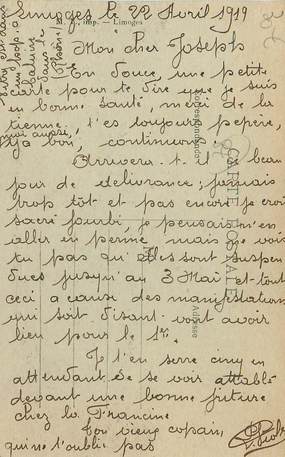 Limoges le 22 Avril 1919
M. E, imp. - Limoges
Mon cher Joseph
En douce, une petite
carte pour te dire que je suis
en bonne santé, merci de la
tienne. t'es toujours pépère,
moi aussi,
ça bon, continuons.
Arrivera-t-il le beau
jour de délivrance; jamais
trop tôt et pas encore je crois
sacré fourbi, je pensais m'en
aller en perme mais ne vois
tu pas qu'elles sont suspen
dues jusqu'au 3 Mai et tout
ceci a cause des manifestations
qui soit disant vont avoir
lieu pour le 1er.
Je t'en serre cinq en
attendant de se voir attablé
devant une bonne friture
chez la Francine
Ton vieux copain
qui ne t'oublie pas
CARTE POSTALE
Correspondance
Adresse